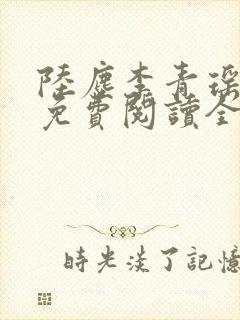 陸塵李青瑤
免費閱讀全
時光淡了記憶